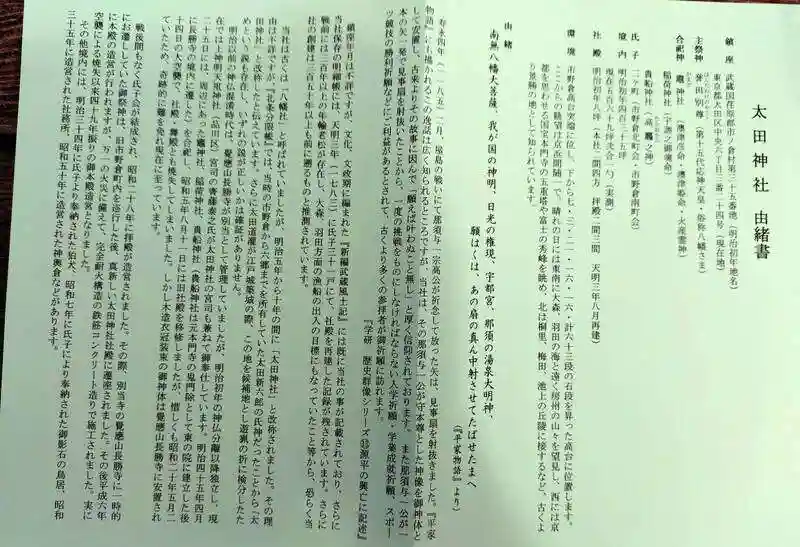 太田神社 由緒書
鎮座 武蔵国荏原郡市ノ倉村二十五番地(明治初年地名)
東京都大田区中央六丁目三番二十四号(現在地)
主祭神 誉田別尊(第十五代応神天皇・俗称八幡さま)
合祀神 竈神社(澳津彦命・澳津姫命・火産霊神)
稲荷神社(宇迦之御魂命)
貴船神社(高龗之神)
氏子 二ケ町(市野倉北町会・市野倉南町会)
境内 明治初年四百三十五坪
現在五百八十九坪弐合一勺(実測)
社殿 明治初年八坪(本社二間四方 拝殿二間三間 天明三年八月再建)
環境 市野倉高台突端に位し、下から七・三・二一・一六・一六・計六十三段の石段を昇った高台に位置します。
ここからの眺望は京浜間随一で、晴れの日には東南に大森、羽田の海と遠く房州の山々を望見し、西には京
都を思わせる国宝本門寺の五重塔や富士の秀峰を眺め、北は桐里、梅田、池上の丘陵に接するなど、古くよ
り景勝の地として知られています。
由緒
南無八幡大菩薩、我が国の神明、日光の権現、宇都宮、那須の湯泉大明神、
願はくは、あの扇の真ん中射させてたばせたまへ
『平家物語』より)
寿永四年(一一八五)二月、屋島の戦いにて那須与一宗高公が祈念して放った矢は、見事扇を射抜きました。『平家
物語』にも描かれるこの逸話は広く知られるところですが、当社は、その那須与一公が守本尊とした神像を御神体と
して安置し、古来よりその故事に因んで「願えば叶わぬこと無し」と厚く信仰されております。また那須与一公が一
本の矢一発で見事扇を射抜いたことから、一度の挑戦をものにしなければならない入学祈願・学業成就祈願、スポー
ツ競技の勝利祈願などにご利益があるとされて、古くより多くの参拝者が御祈願に訪れます。
『学研 歴史群像シリーズ⑬源平の興亡に記述』
鎮座年月は不詳ですが、文化、文政期に編まれた『新編武蔵風土記』には既に当社の事が記載されており、さらに
当社保存の明細帳には、天明三年(一七八三)に氏子三十一戸にて、社殿を再建した記録が残されています。さらに
戦前には三百年以上の年輪の松が存し、大森、羽田方面の漁船の出入の目標にもなっていたこと等から、恐らく当
社の創建は三百五十年以上も前に遡るものと推測されています。
当社は古くは「八幡社」と呼ばれていましたが、明治五年から十年の間に「太田神社」と改称されました。その理
由は不詳ですが『北条分限帳』では、当時の市野倉から六郷までを所有していた太田新六郎の氏神だったことから「太
田神社」と改称したと伝えています。さらに太田道灌が江戸城築城の際、この地を候補地とし遊猟の折に検分したた
めという説も存在し、いずれの説が正しいかは確証がありません。
明治以前の神仏混淆時代は、覺應山長勝寺が別当として管理していましたが、明治初年の神仏分離以降独立し、現
在では上神明天祖神社(品川区)宮司の齊藤泰之氏が太田神社の宮司も兼ねて御奉仕しています。明治四十五年四月
二十五日には、周辺にあった竈神社、稲荷神社、貴船神社(貴船神社は元本門寺の鬼門除として東の院に建立した後
に長勝寺の境内に遷した)を合祀し、昭和五年八月十一日には旧社殿を移修しましたが、惜しくも昭和二十年五月二
十四日の大空襲で、社殿、舞殿とも焼失してしまいました。しかし木造衣冠装束の御神体は覺應山長勝寺に安置され
ていたため、奇跡的に難を免れ現在に至っています。
戦後間もなく氏子会が結成され、昭和二十八年に拝殿が造営されました。その際、別当寺の覺應山長勝寺に一時的
にお遷していた御祭神は、旧市野倉町内を巡行した後、真新しい太田神社社殿に遷座されました。その後平成六年
に本殿の造営が行われますが、万一の火災に備えて、完全耐火構造の鉄筋コンクリート造りで施工されました。実に
空襲による焼失以来四十九年振りの御本殿造営となりました。
その他境内には、明治三十四年に氏子より奉納された狛犬、昭和七年に氏子により奉納された御影石の鳥居、昭和
三十五年に造営された社務所、昭和五十年に造営された神輿倉などがあります。